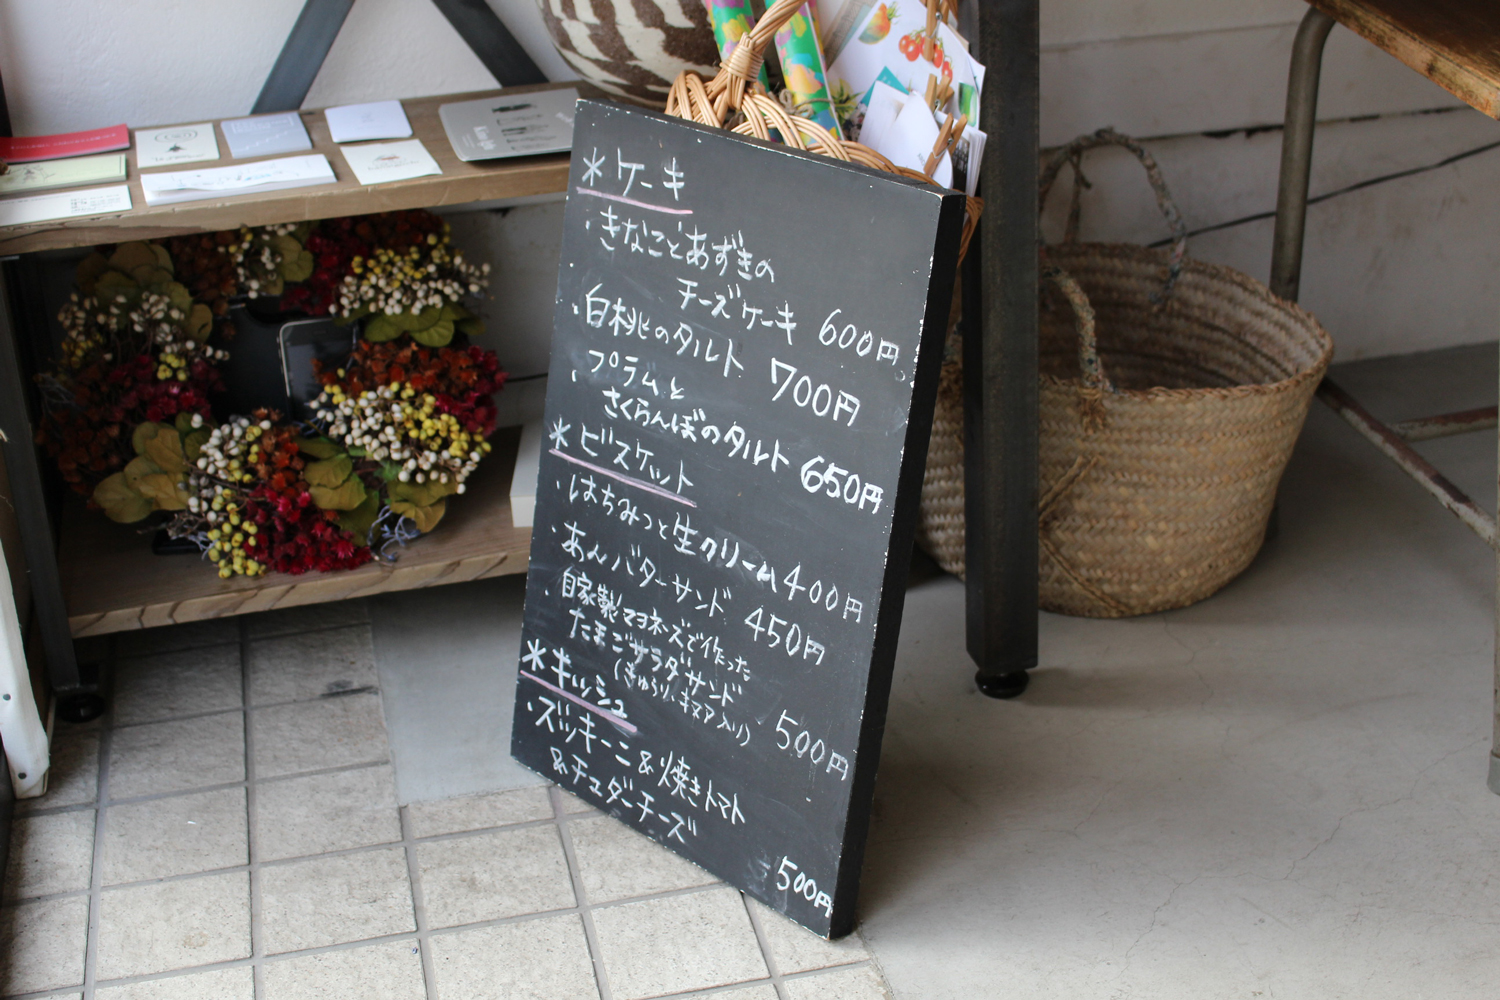 *ケーキ
・きなことあずきの
チーズケーキ 600円
・白桃のタルト 700円
・プラムと
さくらんぼのタルト 650円
*ビスケット
・はちみつと生クリーム 400円
・あんバターサンド 450円
・自家製マヨネーズで作った
たまごサラダサンド
(きゅうり、キヌア入り) 500円
*キッシュ
・ズッキーニ&焼きトマト
&チェダーチーズ
500円